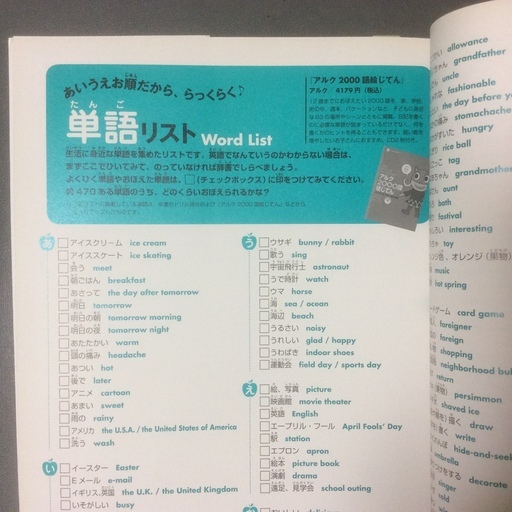 あいうえお順だから、らっくらく♪
たんご
単語リスト Word List
生活に身近な単語を集めたリストです。英語でなんていうのかわからない場合は、
まずここでひいてみて、のっていなければ辞書でしらべましょう。
よくひく単語やおぼえた単語は、□(チェックボックス)に印をつけてみてください。
約470ある単語のうち、どのくらいおぼえられるかな?
『アルク2000語絵じてん』
アルク 4179円(税込)
アルク
2000語
絵じてん
あ
アイスクリーム ice cream
アイススケート ice skating
会う meet
朝ごはん breakfast
あさって the day after tomorrow
明日 tomorrow
明日の朝 tomorrow morning
明日の夜 tomorrow night
あたたかい warm
頭の痛み headache
あつい hot
後で later
アニメ cartoon
あまい sweet
雨の rainy
アメリカ the U.S.A. / the United States of America
洗う wash
い
イースター Easter
Eメール e-mail
イギリス,英国 the U.K. / the United Kingdom
いそがしい busy
う
ウサギ bunny / rabbit
歌う sing
宇宙飛行士 astronaut
うで時計 watch
ウマ horse
海 sea / ocean
海辺 beach
うるさい noisy
うれしい glad / happy
うわばき indoor shoes
運動会 field day / sports day
え
絵、写真 picture
映画館 movie theater
英語 English
エープリル・フール April Fools' Day
駅 station
エプロン apron
絵本 picture book
演劇 drama
遠足、見学会 school outing
お
allowance
grandfather
uncle
fashionable
the day before ye
stomachac
hungry
rice ball
tag
grandmother
aunt
bath
festival
interesting
toy
オレンジ(果物)
music
hot spring
card game
foreigner
foreign
shopping
neighborhood bull
return
persimmon
shaved ice
draw
write
hide-and-seek
umbrella
decorate
singer
cold